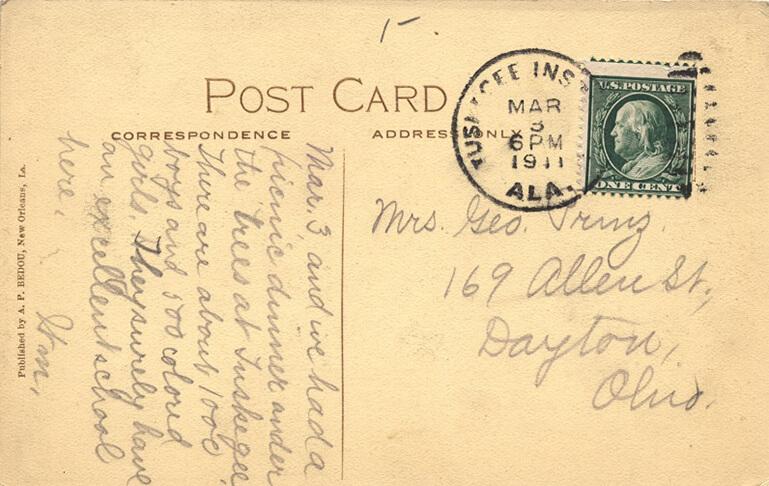 POST CARD
CORRESPONDENCE
ADDRESS ONLY
TUSKEGEE INS
MAR
3
6 PM
1911
ALA.
U.S. POSTAGE
ONE CENT
Mar. 3, and we had a
picnic dinner under
the trees at Tuskegee.
There are about 1000
boys and 500 colored
girls. They surely have
an excellent school
here.
Mrs. Geo.
169 Allen St.,
Dayton,
Ohio.
Published by A. P. BEDOU, New Orleans, La.